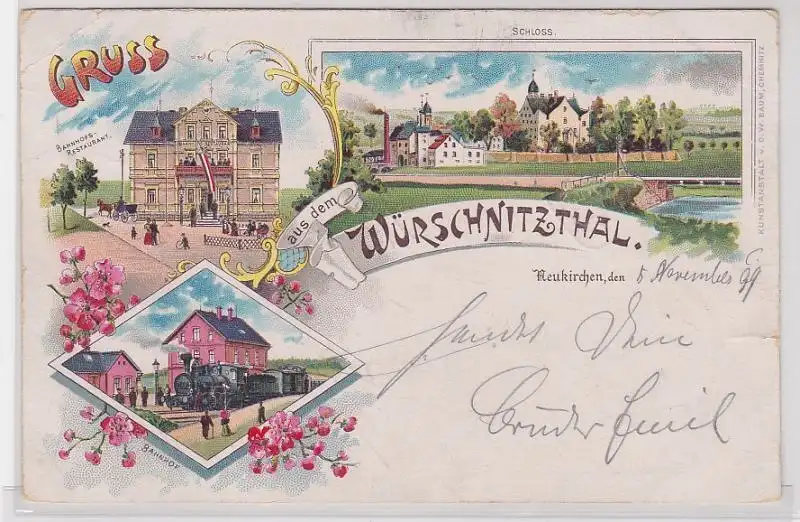 SCHLOSS.
GRUSS
BAHNHOFS-
RESTAURANT.
aus dem
WÜRSCHNITZTHAL.
KUNSTANSTALT v. C.W. BAUM, CHEMNITZ
Neukirchen, den 5 November 99
sendet Dein
Bruder Emil
BAHNHOF